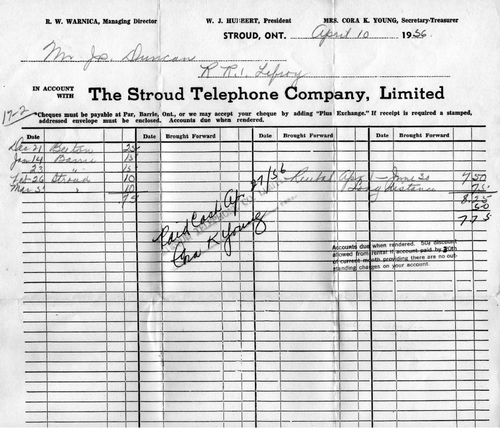 R. W. WARNICA, Managing Director W. J. HUBBERT, President MRS. CORA K. YOUNG, Secretary-Treasurer
STROUD, ONT. April 10 1956
Mr Jos. Duncan
R R 1, Lefroy
IN ACCOUNT WITH The Stroud Telephone Company, Limited
17-2
*Cheques must be payable at Par, Barrie, Ont., or we may accept your cheque by adding "Plus Exchange." If receipt is required a stamped, addressed envelope must be enclosed. Accounts due when rendered.
Date Brought Forward Date Brought Forward Date Brought Forward
Dec 21 Beeton 25
Jan 14 Barrie 15
23 " 15 Rental Apr 1 - June 30 7 50
Feb 26 Stroud 10 Long Distance 75
Mar 31 " 10 8 25
75 50
7 75
Paid Cash Apr 27/56
Cora K Young
Accounts due when rendered. 50¢ discount allowed from rental if account paid by 30th of current month providing there are no outstanding charges on your account.